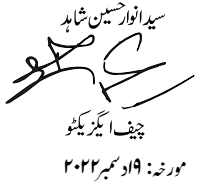 سید انوار حسین شاہد
چیف ایگزیکٹو
مورخہ: ۱۹ دسمبر ۲۰۲۲